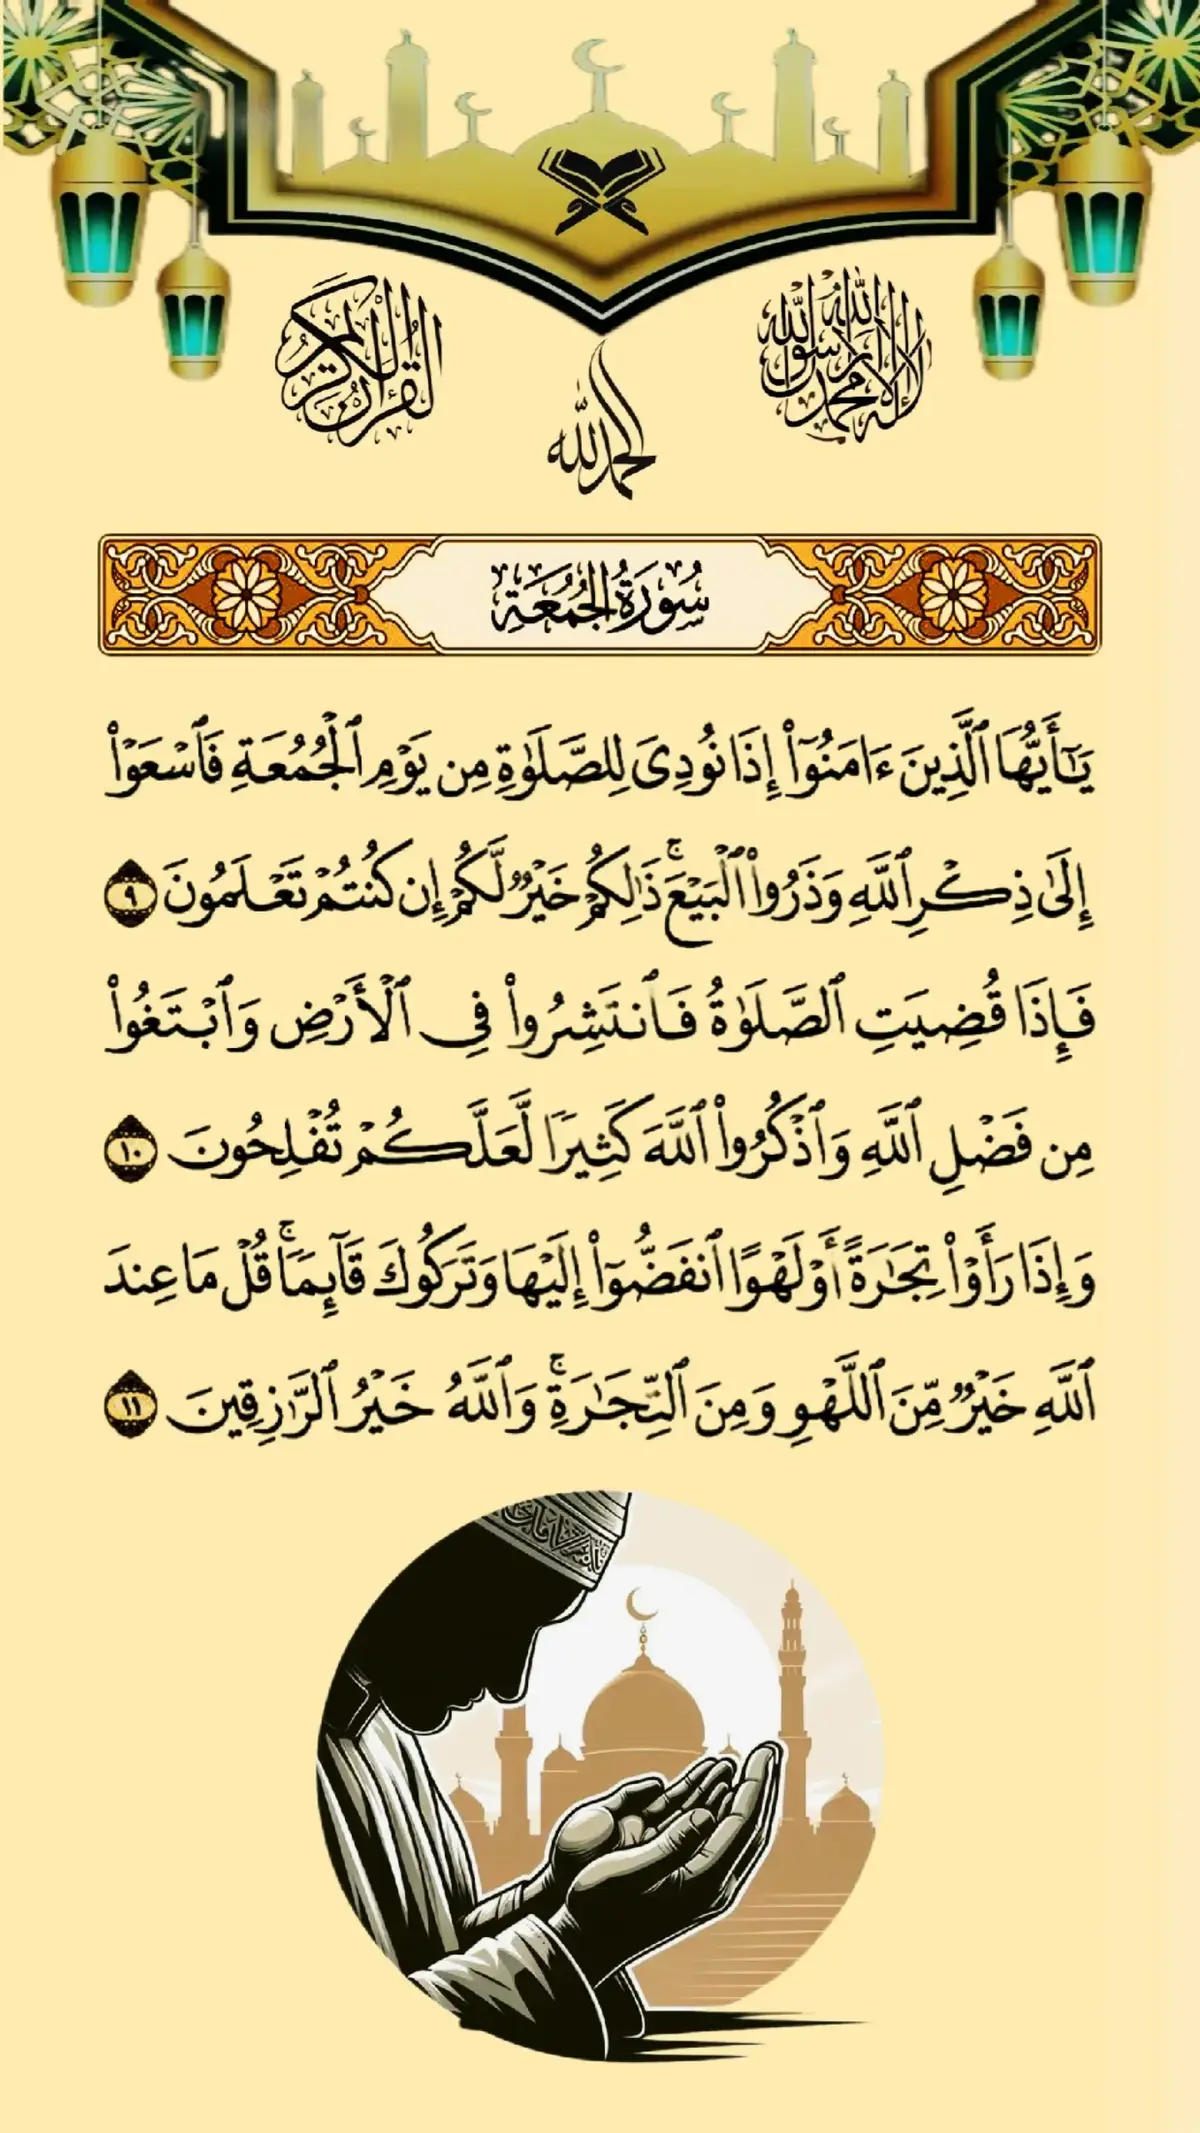 القرآن الكريم
لا إله إلا الله محمد رسول الله
الحمد لله
سُورَةُ الجُمُعَةِ
يَٰٓأَيُّهَا ٱلَّذِينَ ءَامَنُوٓاْ إِذَا نُودِىَ لِلصَّلَوٰةِ مِن يَوْمِ ٱلْجُمُعَةِ فَٱسْعَوْاْ
إِلَىٰ ذِكْرِ ٱللَّهِ وَذَرُواْ ٱلْبَيْعَۚ ذَٰلِكُمْ خَيْرٌ لَّكُمْ إِن كُنتُمْ تَعْلَمُونَ ٩
فَإِذَا قُضِيَتِ ٱلصَّلَوٰةُ فَٱنتَشِرُواْ فِى ٱلْأَرْضِ وَٱبْتَغُواْ
مِن فَضْلِ ٱللَّهِ وَٱذْكُرُواْ ٱللَّهَ كَثِيرًا لَّعَلَّكُمْ تُفْلِحُونَ ١٠
وَإِذَا رَأَوْاْ تِجَٰرَةً أَوْ لَهْوًا ٱنفَضُّوٓاْ إِلَيْهَا وَتَرَكُوكَ قَآئِمًاۚ قُلْ مَا عِندَ
ٱللَّهِ خَيْرٌ مِّنَ ٱللَّهْوِ وَمِنَ ٱلتِّجَٰرَةِۚ وَٱللَّهُ خَيْرُ ٱلرَّٰزِقِينَ ١١